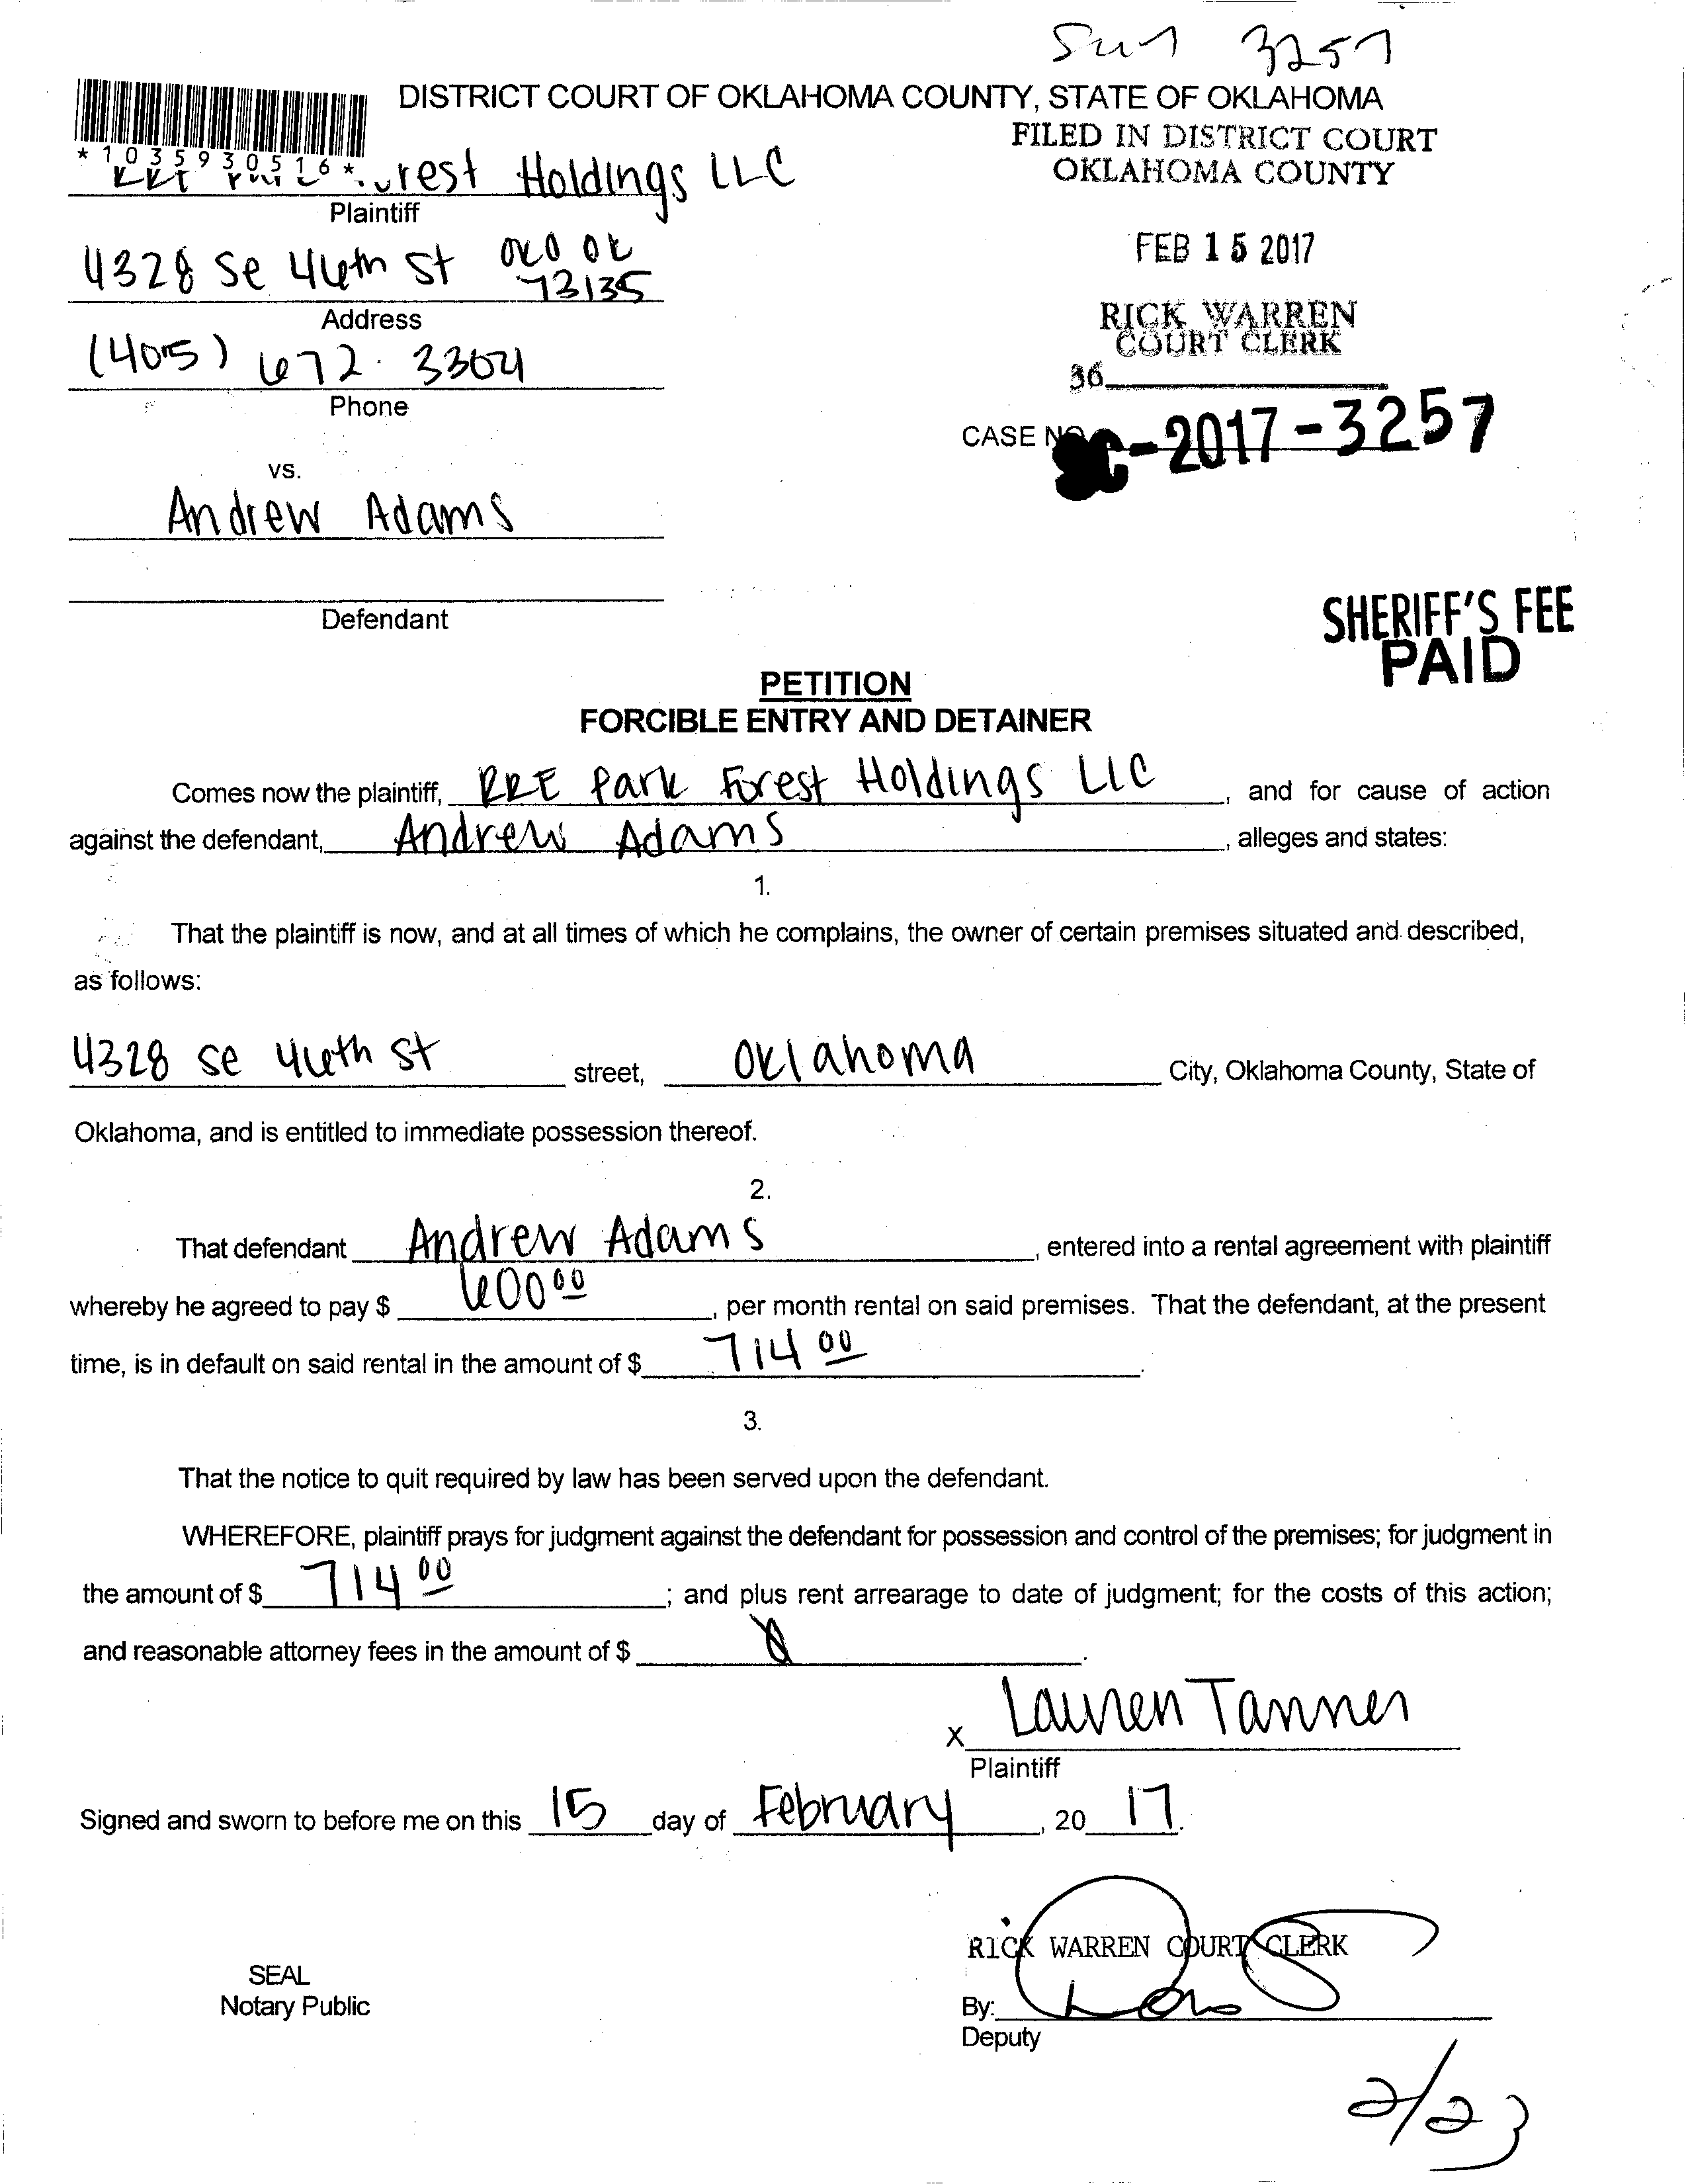 3257
DISTRICT COURT OF OKLAHOMA COUNTY, STATE OF OKLAHOMA
FILED IN DISTRICT COURT
OKLAHOMA COUNTY
*1035930516*
Holdings LLC
Plaintiff
4328 Se 46th St OKC OK
73135
Address
FEB 15 2017
RICK WARREN
COURT CLERK
36
(405) 672-3304
Phone
CASE NO. SC-2017-3257
vs.
Andrew Adams
Defendant
SHERIFF'S FEE
PAID
PETITION
FORCIBLE ENTRY AND DETAINER
Comes now the plaintiff, RRE Park Forest Holdings LLC, and for cause of action
against the defendant, Andrew Adams, alleges and states:
1.
That the plaintiff is now, and at all times of which he complains, the owner of certain premises situated and described,
as follows:
4328 se 46th st street, Oklahoma City, Oklahoma County, State of
Oklahoma, and is entitled to immediate possession thereof.
2.
That defendant Andrew Adams, entered into a rental agreement with plaintiff
whereby he agreed to pay $ 600 00, per month rental on said premises. That the defendant, at the present
time, is in default on said rental in the amount of $ 714 00.
3.
That the notice to quit required by law has been served upon the defendant.
WHEREFORE, plaintiff prays for judgment against the defendant for possession and control of the premises; for judgment in
the amount of $ 714 00; and plus rent arrearage to date of judgment; for the costs of this action;
and reasonable attorney fees in the amount of $ 0.
X Lauren Tanner
Plaintiff
Signed and sworn to before me on this 15 day of February, 20 17.
RICK WARREN COURT CLERK
SEAL
Notary Public
By:
Deputy
2/23